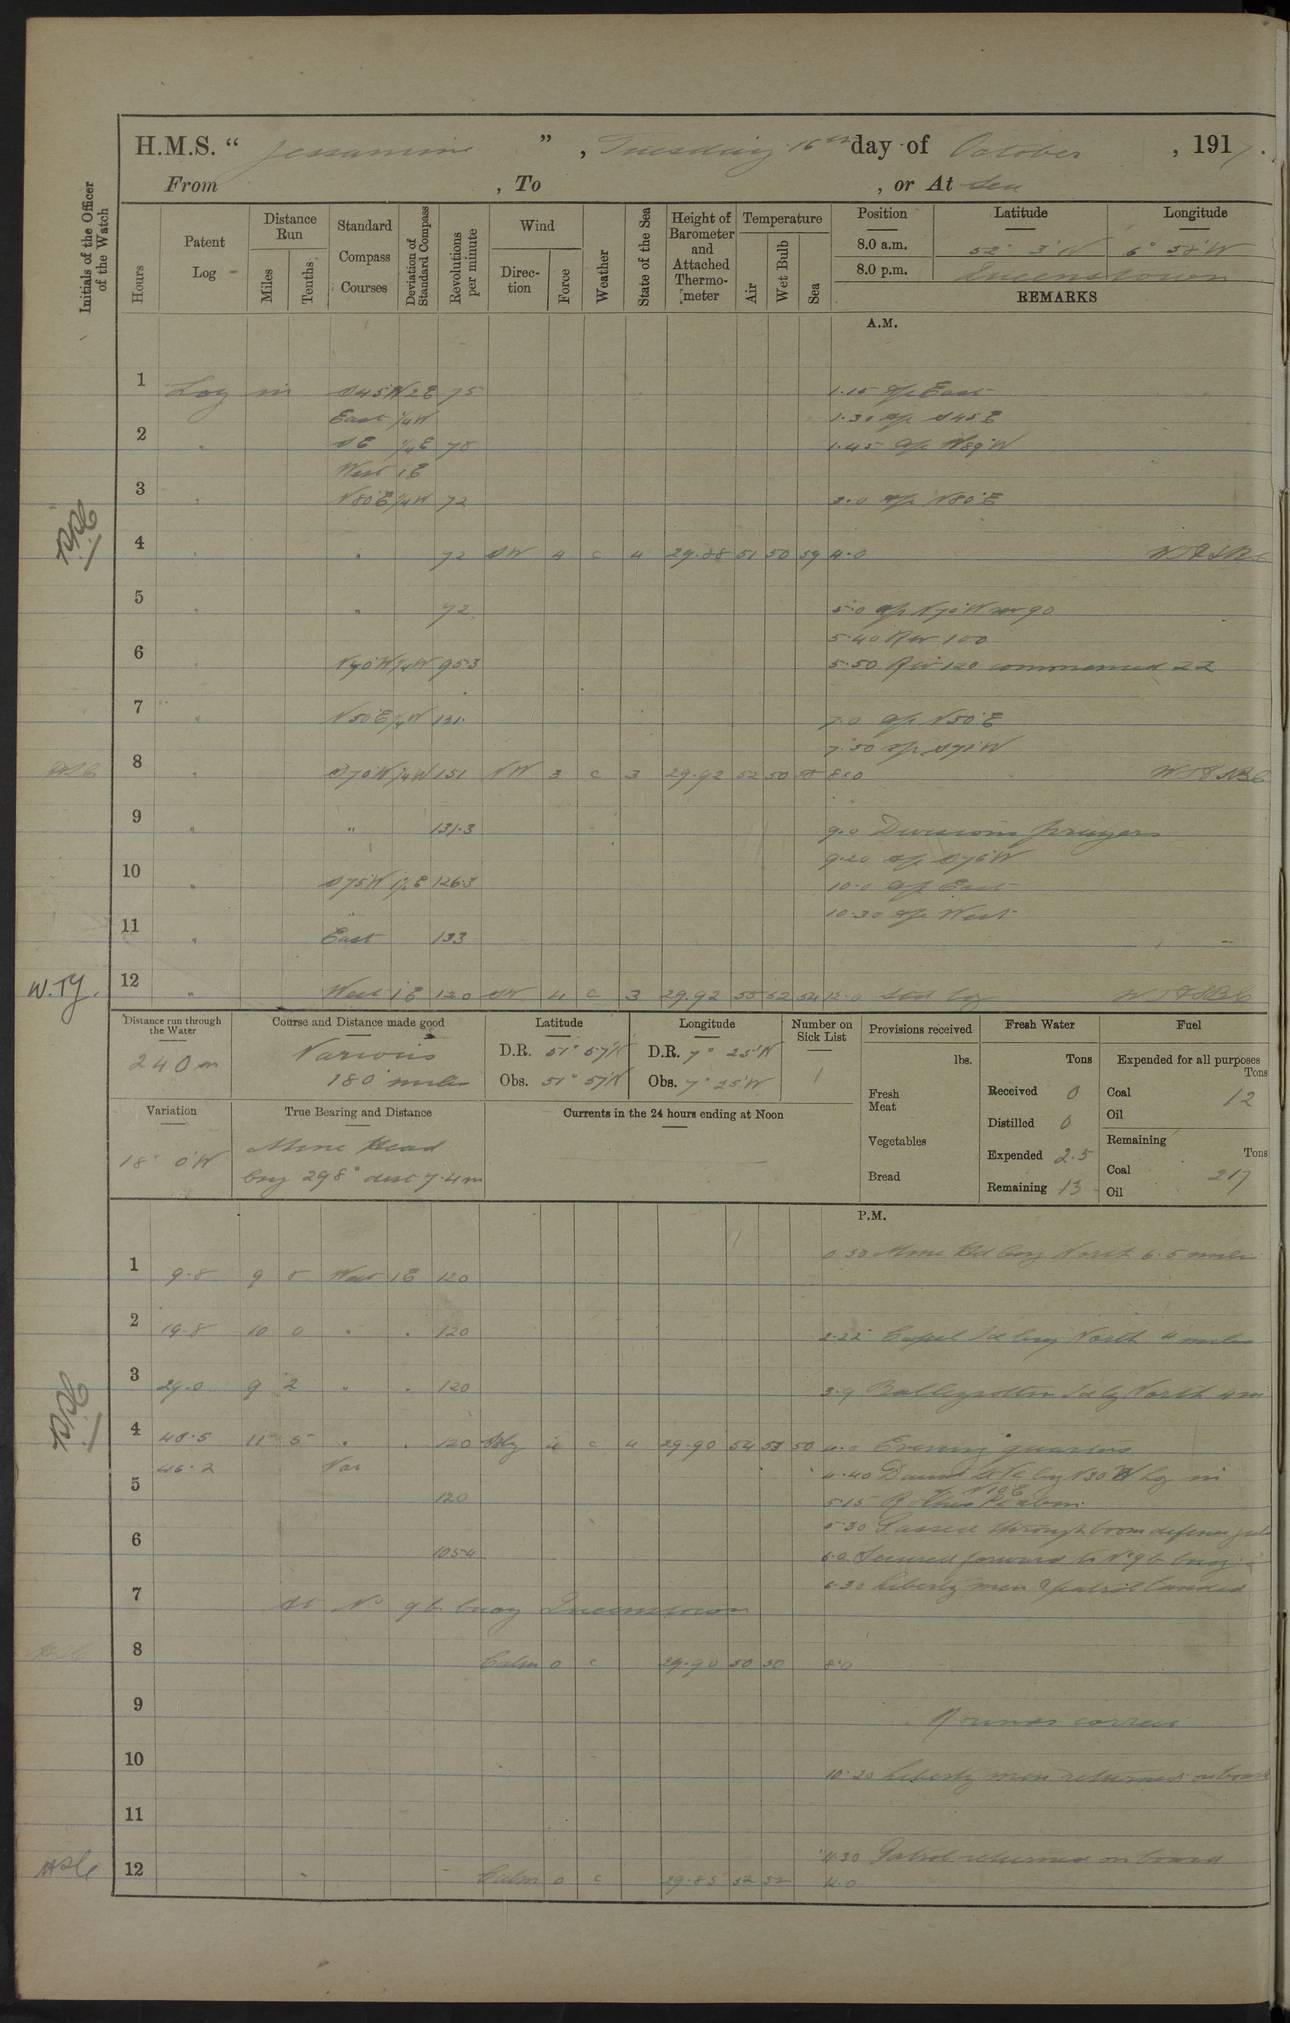 H.M.S. “ Jessamine ” , Tuesday 16th day of October , 1917.
From , To , or At Sea
Initials of the Officer of the Watch
Hours
Patent Log
Distance Run
Miles
Tenths
Standard Compass Courses
Deviation of Standard Compass
Revolutions per minute
Wind
Direction
Force
Weather
State of the Sea
Height of Barometer and Attached Thermometer
Temperature
Air
Wet Bulb
Sea
Position Latitude Longitude
8.0 a.m. 52° 3'N 6° 58'W
8.0 p.m. Queenstown
REMARKS
A.M.
1 Log in S45W 2E 75 1.15 a/c East
East ¼W 1.30 a/c S45E
2 " SE ¼E 75 1.45 a/c N89W
West 1E
3 " N80E ¼W 72 3.0 a/c N80E
4 " " 72 SW 4 c 4 29.88 51 50 59 4.0
5 " " 72 5.0 a/c N70W rev 90
5.40 Rev 100
6 " N70W ¼W 95.3 5.50 Rev 120 commenced ZZ
7 " N50E ¼W 131. 7.0 a/c N50E
7.50 a/c S70W
8 " S70W ¼W 151 NW 3 c 3 29.92 52 50 55 8.0
9 " " 131.3 9.0 Divisions prayers
9.20 a/c S75W
10 " S75W 1½E 126.3 10.0 a/c East
10.30 a/c West
11 " East 133
W.TY. 12 " West 1E 120 SW 4 c 3 29.92 55 52 54 12.0
Distance run through the Water
240 m
Course and Distance made good
Various
180 miles
Latitude
D.R. 51° 57'N
Obs. 51° 57'N
Longitude
D.R. 7° 25'W
Obs. 7° 25'W
Number on Sick List
1
Provisions received
lbs.
Fresh Meat
Vegetables
Bread
Fresh Water
Tons
Received 0
Distilled 0
Expended 2.5
Remaining 13
Fuel
Expended for all purposes
Tons
Coal 12
Oil
Remaining
Tons
Coal 217
Oil
Variation
18° 0'W
True Bearing and Distance
Mine Head
brg 298° dist 7.4m
Currents in the 24 hours ending at Noon
P.M.
0.50 Mine Hd brg North 6.5 miles
1 9.8 9 8 West 1E 120
2 19.8 10 0 " " 120 2.22 Capel Id brg North 4 miles
3 29.0 9 2 " " 120 3.9 Ballycotton Id brg North 4m
4 40.5 11 5 " " 120 Sly 4 c 4 29.90 54 53 50 4.0 Evening quarters
46.2 Var 4.40 Daunt Lt Vl brg N30W Log in
5 120 5.15
5.30 Passed through boom defence
6 105.4 6.0 Secured forward to No 9b buoy
6.30 Liberty men & patrol landed
7 At No 9b buoy Queenstown
8 Calm 0 c 29.90 50 50 8.0
9 Rounds correct
10 10.20 Liberty men returned on board
11
11.30 Patrol returned on board
12 Calm 0 c 29.85 52 52